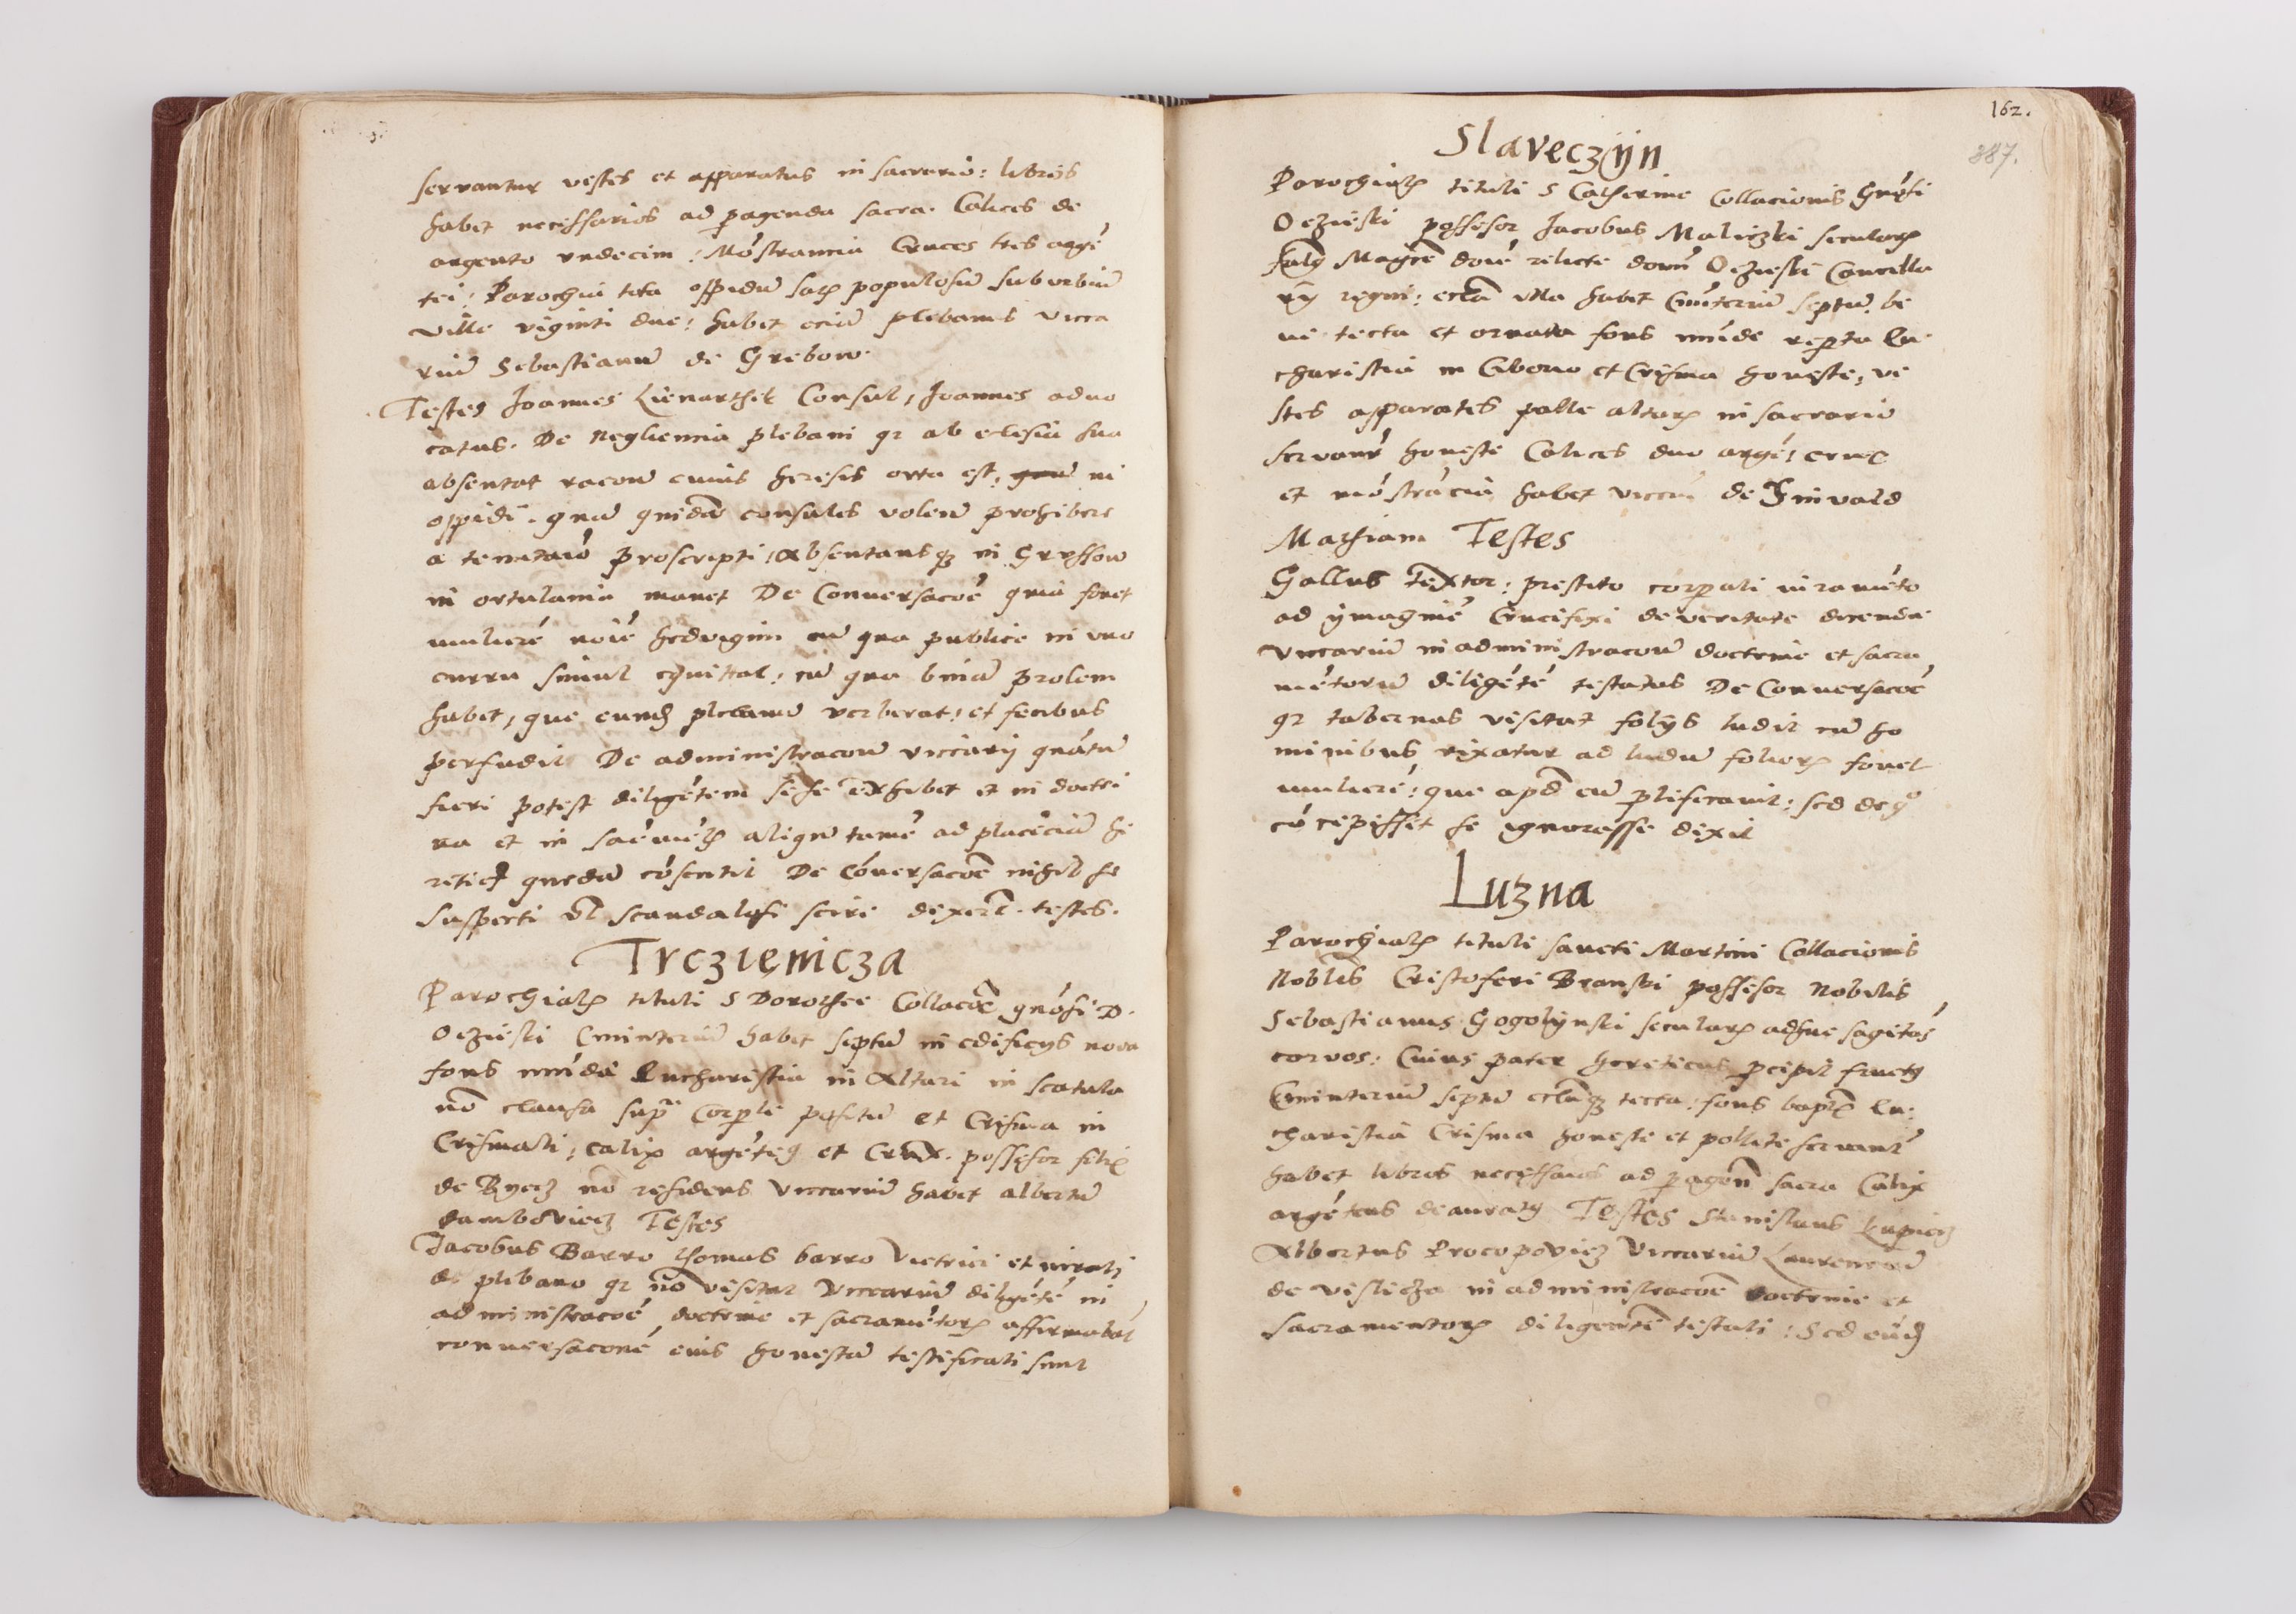 servantur vestes et apparatus in sacrario: libros
habet necessarios ad pagenda sacra. Calices de
argento undecim: Mōstrancia Cruces tres argē
tei: Parochia tota oppidū satis populosū suburbiū
ville viginti due: habet eciā plebanus vicca
riū Sebastianū de Grebow.
Testes Joannes Lienarthek Consul, Joannes advo
catus. De negliencia plebani qr ab eclesia sua
absentat racōne cuius heresis orta est, in
oppidū. quā quidā consules volentes prohibere
a proscripti, Absentansq3 in Gryssow
in ortulania manet De Conversacōe quia fovet
mulierē noīe hedvigim cū qua publice in uno
curru simul equitat: cū qua binā prolem
habet, que eundē plebanū verberat: et fecibus
perfudit De administracōne viccarii quātū
fieri potest diligētem sese exhibet et in doctri
na et in aliquū tamē ad placēciā he
retico4 quedā cōsentit De Cōversacōe nihil se
suspecti vl scandalosi scire dixerūt testes.
Trczienicza
Parochialis tituli S Dorothee Collacōe gnōsi D.
Oczieski Cminteriū habet septū in edificiis nova
fons mūda Eucharistia in Altari in scatula
nō clausa supra Corpale positū et Crisma in
Crismali, calix argēte9 et Crux. possesor felix
de Byecz nō residens viccariū habet albertū
damboviecz Testes
Jacobus Barro thomas barro Victrici et iurati
de plebano qr nō visitat Viccariū diligētē in
administracōe doctrine et sacramētor4 affirmabāt
conversacōnē eius honestā testificati sunt
162.
387.
Slaveczyn
Parochialis tituli S Catherine Collacionis Gnōsi
Oczieski possesor Jacobus Maliczki secularis
Magcē dōne relicte domī Oczieski Cancella
rii regni: eccla illa habet Cmīteriū septū, be
ne tecta et ornata fons mūde reperta Eu
charistia in Cibono et Crisma honeste, ve
stes apparates palle altaris in sacrario
servantr honeste Calices duo argē: crux
et mōstrācia habet viccm de Grinvald
Mathiam Testes
Gallus textor: prestito corporali iuramēto
ad ymaginē Crucifixi de veritate dicenda
viccariū in administracōne doctrine et sacra
mētorū diligētē testatus De Conversacōe
qr tabernas visitat foliis ludit cū ho
minibus rixatur ad ludū folior4 fovet
mulierē: que apud eū plificavit: sed de qo
cōcepisset se ignorasse dixit
Luzna
Parochialis tituli sancti Martini Collacionis
Nobilis Cristoferi Branski possesor Nobilis
Sebastianus Gogolynski secularis adhuc sagitās
corvos: Cuius pater hereticus pcipit fruct9
Cminteriū septū ecclaq3 tecta: fons bapts Eu:
charistia Crisma honeste et pollite servantr
habet libros necessarios ad pagendā sacra Calix
argēteus deaurat9 Testes Stanislaus Lupiecz
Albertus Procopoviez Viccariū Laurenciū
de Visliczа in administracōe doctrine et
sacramentor4 diligentē testati: Sed eūdē